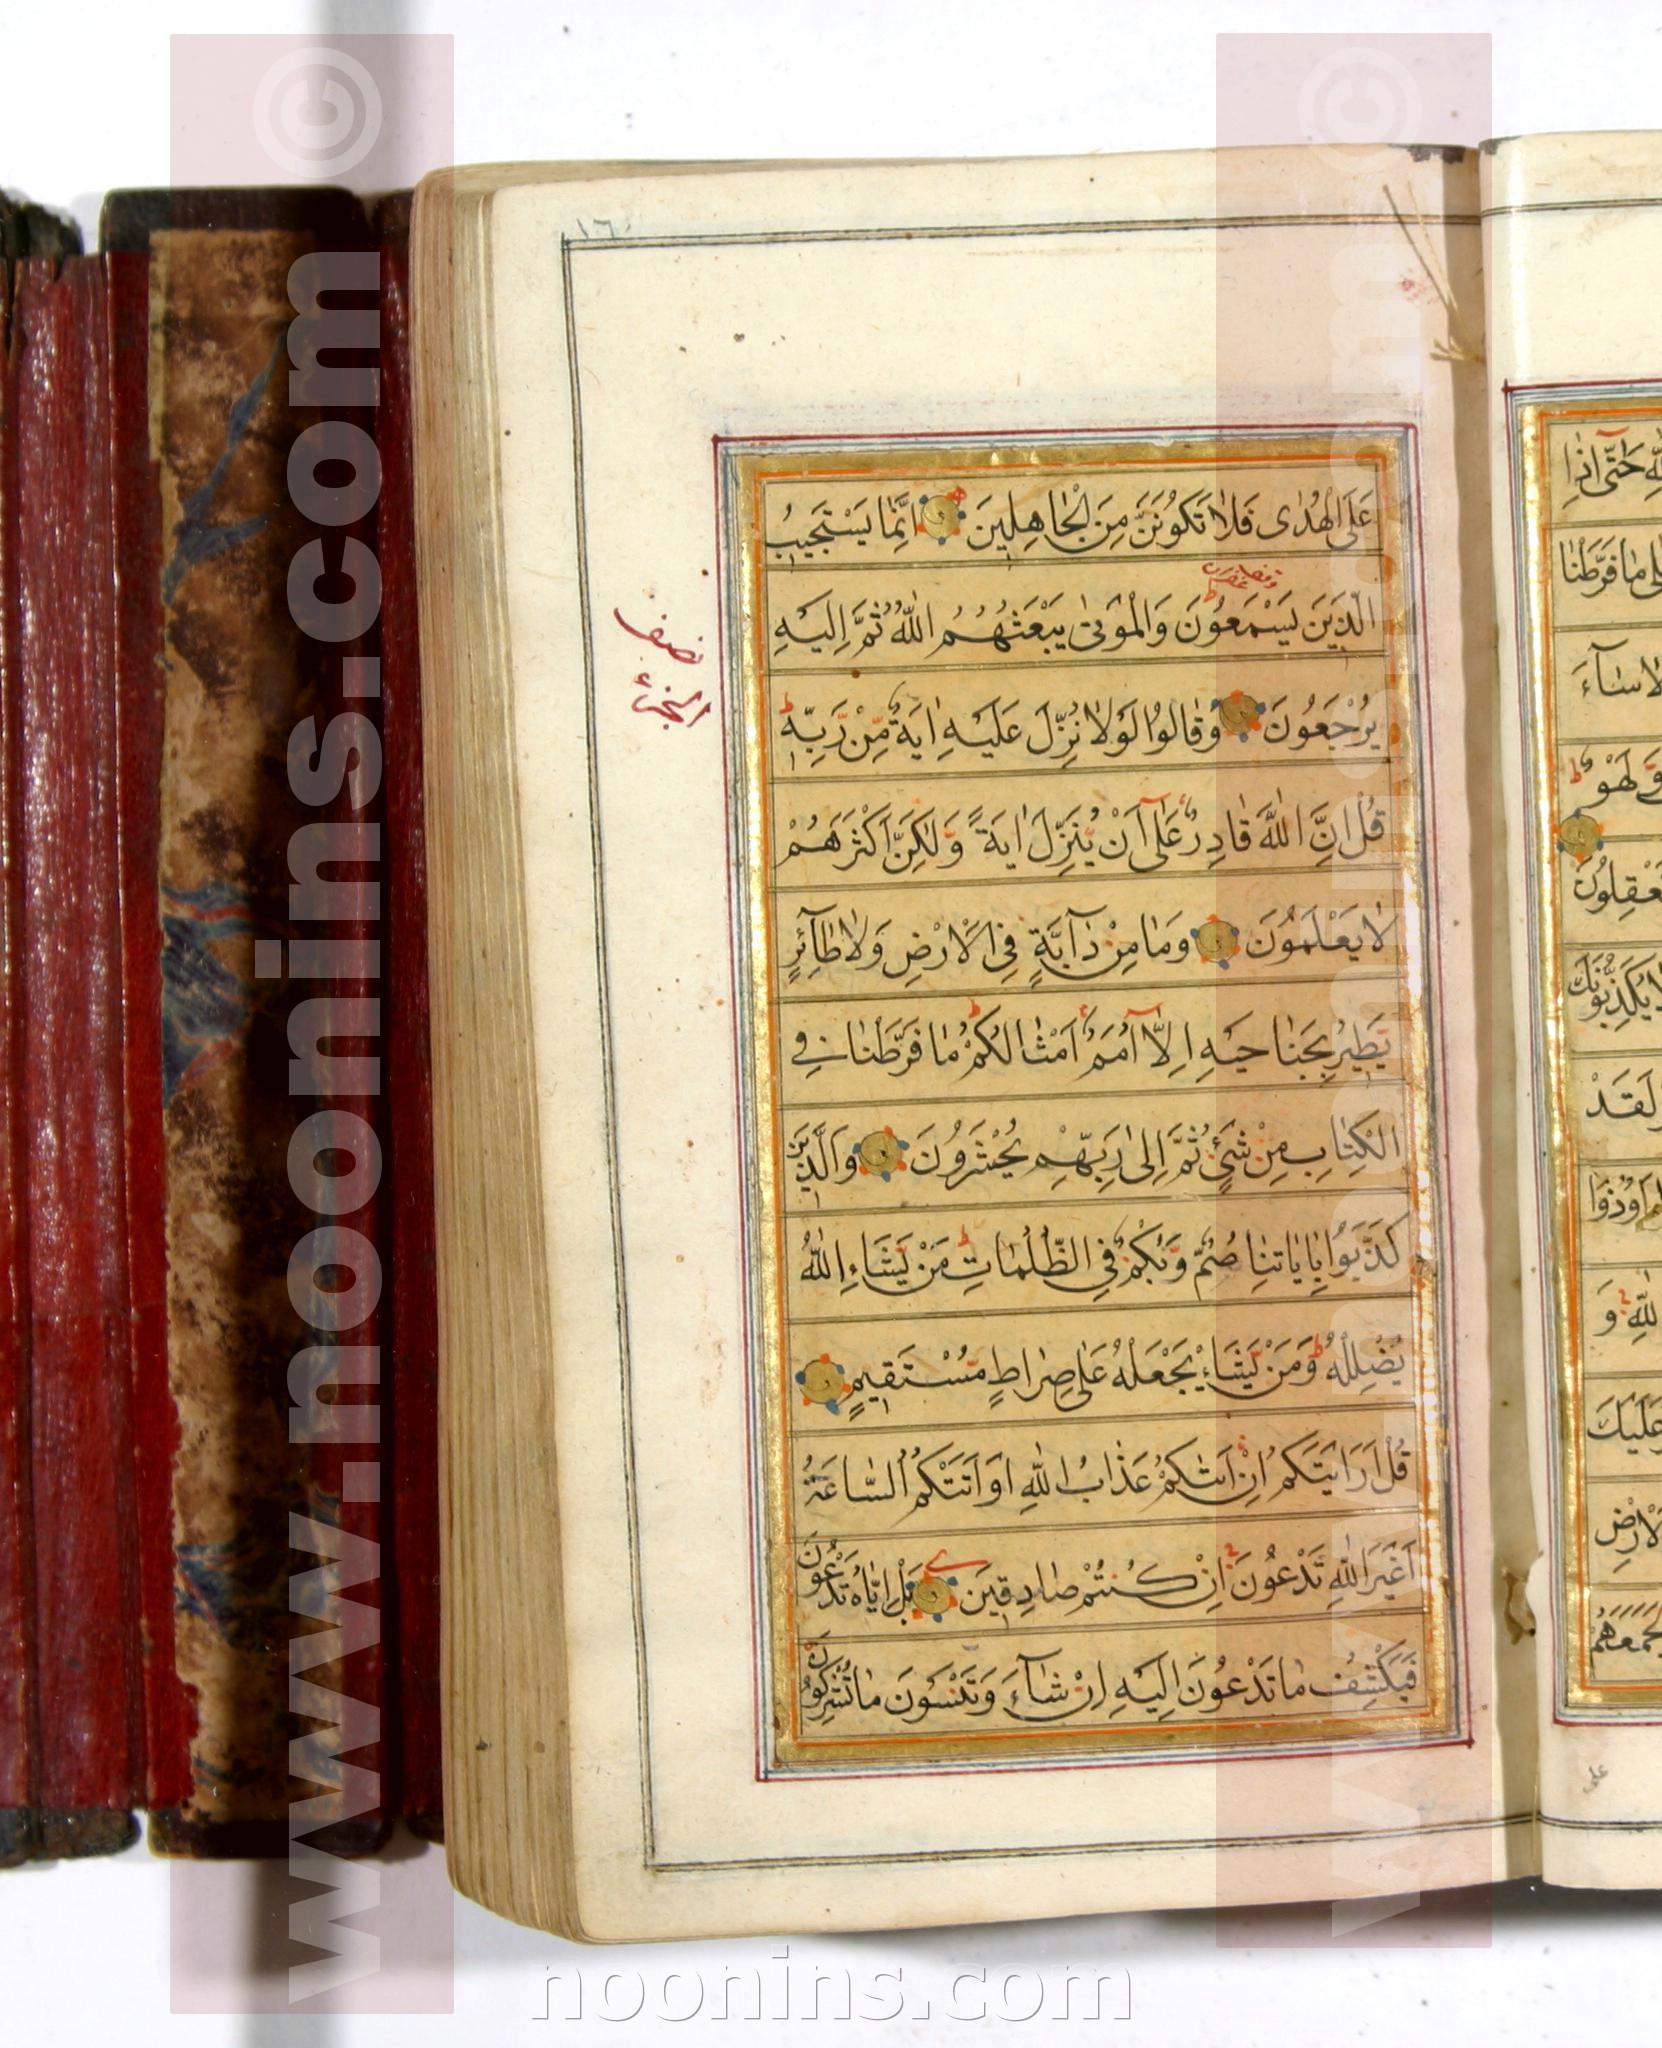 ١٦٠
عَلَى الْهُدٰى فَلَا تَكُونَنَّ مِنَ الْجَاهِلِينَ اِنَّمَا يَسْتَجِيبُ
الَّذِينَ يَسْمَعُونَ وَالْمَوْتٰى يَبْعَثُهُمُ اللّٰهُ ثُمَّ اِلَيْهِ
يُرْجَعُونَ وَقَالُوا لَوْلَا نُزِّلَ عَلَيْهِ اٰيَةٌ مِّنْ رَبِّهٖ
قُلْ اِنَّ اللّٰهَ قَادِرٌ عَلٰٓى اَنْ يُنَزِّلَ اٰيَةً وَّلٰكِنَّ اَكْثَرَهُمْ
لَا يَعْلَمُونَ وَمَا مِنْ دَٓابَّةٍ فِى الْاَرْضِ وَلَا طَٓائِرٍ
يَطِيرُ بِجَنَاحَيْهِ اِلَّٓا اُمَمٌ اَمْثَالُكُمْ مَا فَرَّطْنَا فِى
الْكِتَابِ مِنْ شَىْءٍ ثُمَّ اِلٰى رَبِّهِمْ يُحْشَرُونَ وَالَّذِينَ
كَذَّبُوا بِاٰيَاتِنَا صُمٌّ وَّبُكْمٌ فِى الظُّلُمَاتِ مَنْ يَشَاءِ اللّٰهُ
يُضْلِلْهُ وَمَنْ يَشَاءْ يَجْعَلْهُ عَلٰى صِرَاطٍ مُّسْتَقِيمٍ
قُلْ اَرَاَيْتَكُمْ اِنْ اَتٰىكُمْ عَذَابُ اللّٰهِ اَوْ اَتَتْكُمُ السَّاعَةُ
اَغَيْرَ اللّٰهِ تَدْعُونَ اِنْ كُنْتُمْ صَادِقِينَ بَلْ اِيَّاهُ تَدْعُونَ
فَيَكْشِفُ مَا تَدْعُونَ اِلَيْهِ اِنْ شَٓاءَ وَتَنْسَوْنَ مَا تُشْرِكُونَ
نصف
الجزء
حَتّٰٓى اِذَا
مَا فَرَّطْنَا
سَٓاءَ
وَّلَهْوٌ
تَعْقِلُونَ
يُكَذِّبُونَكَ
لَقَدْ
وَاُوذُوا
اللّٰهِ وَ
عَلَيْكَ
الْاَرْضِ
لَجَمَعَهُمْ
على
www.noonins.com ©
www.noonins.com ©
noonins.com